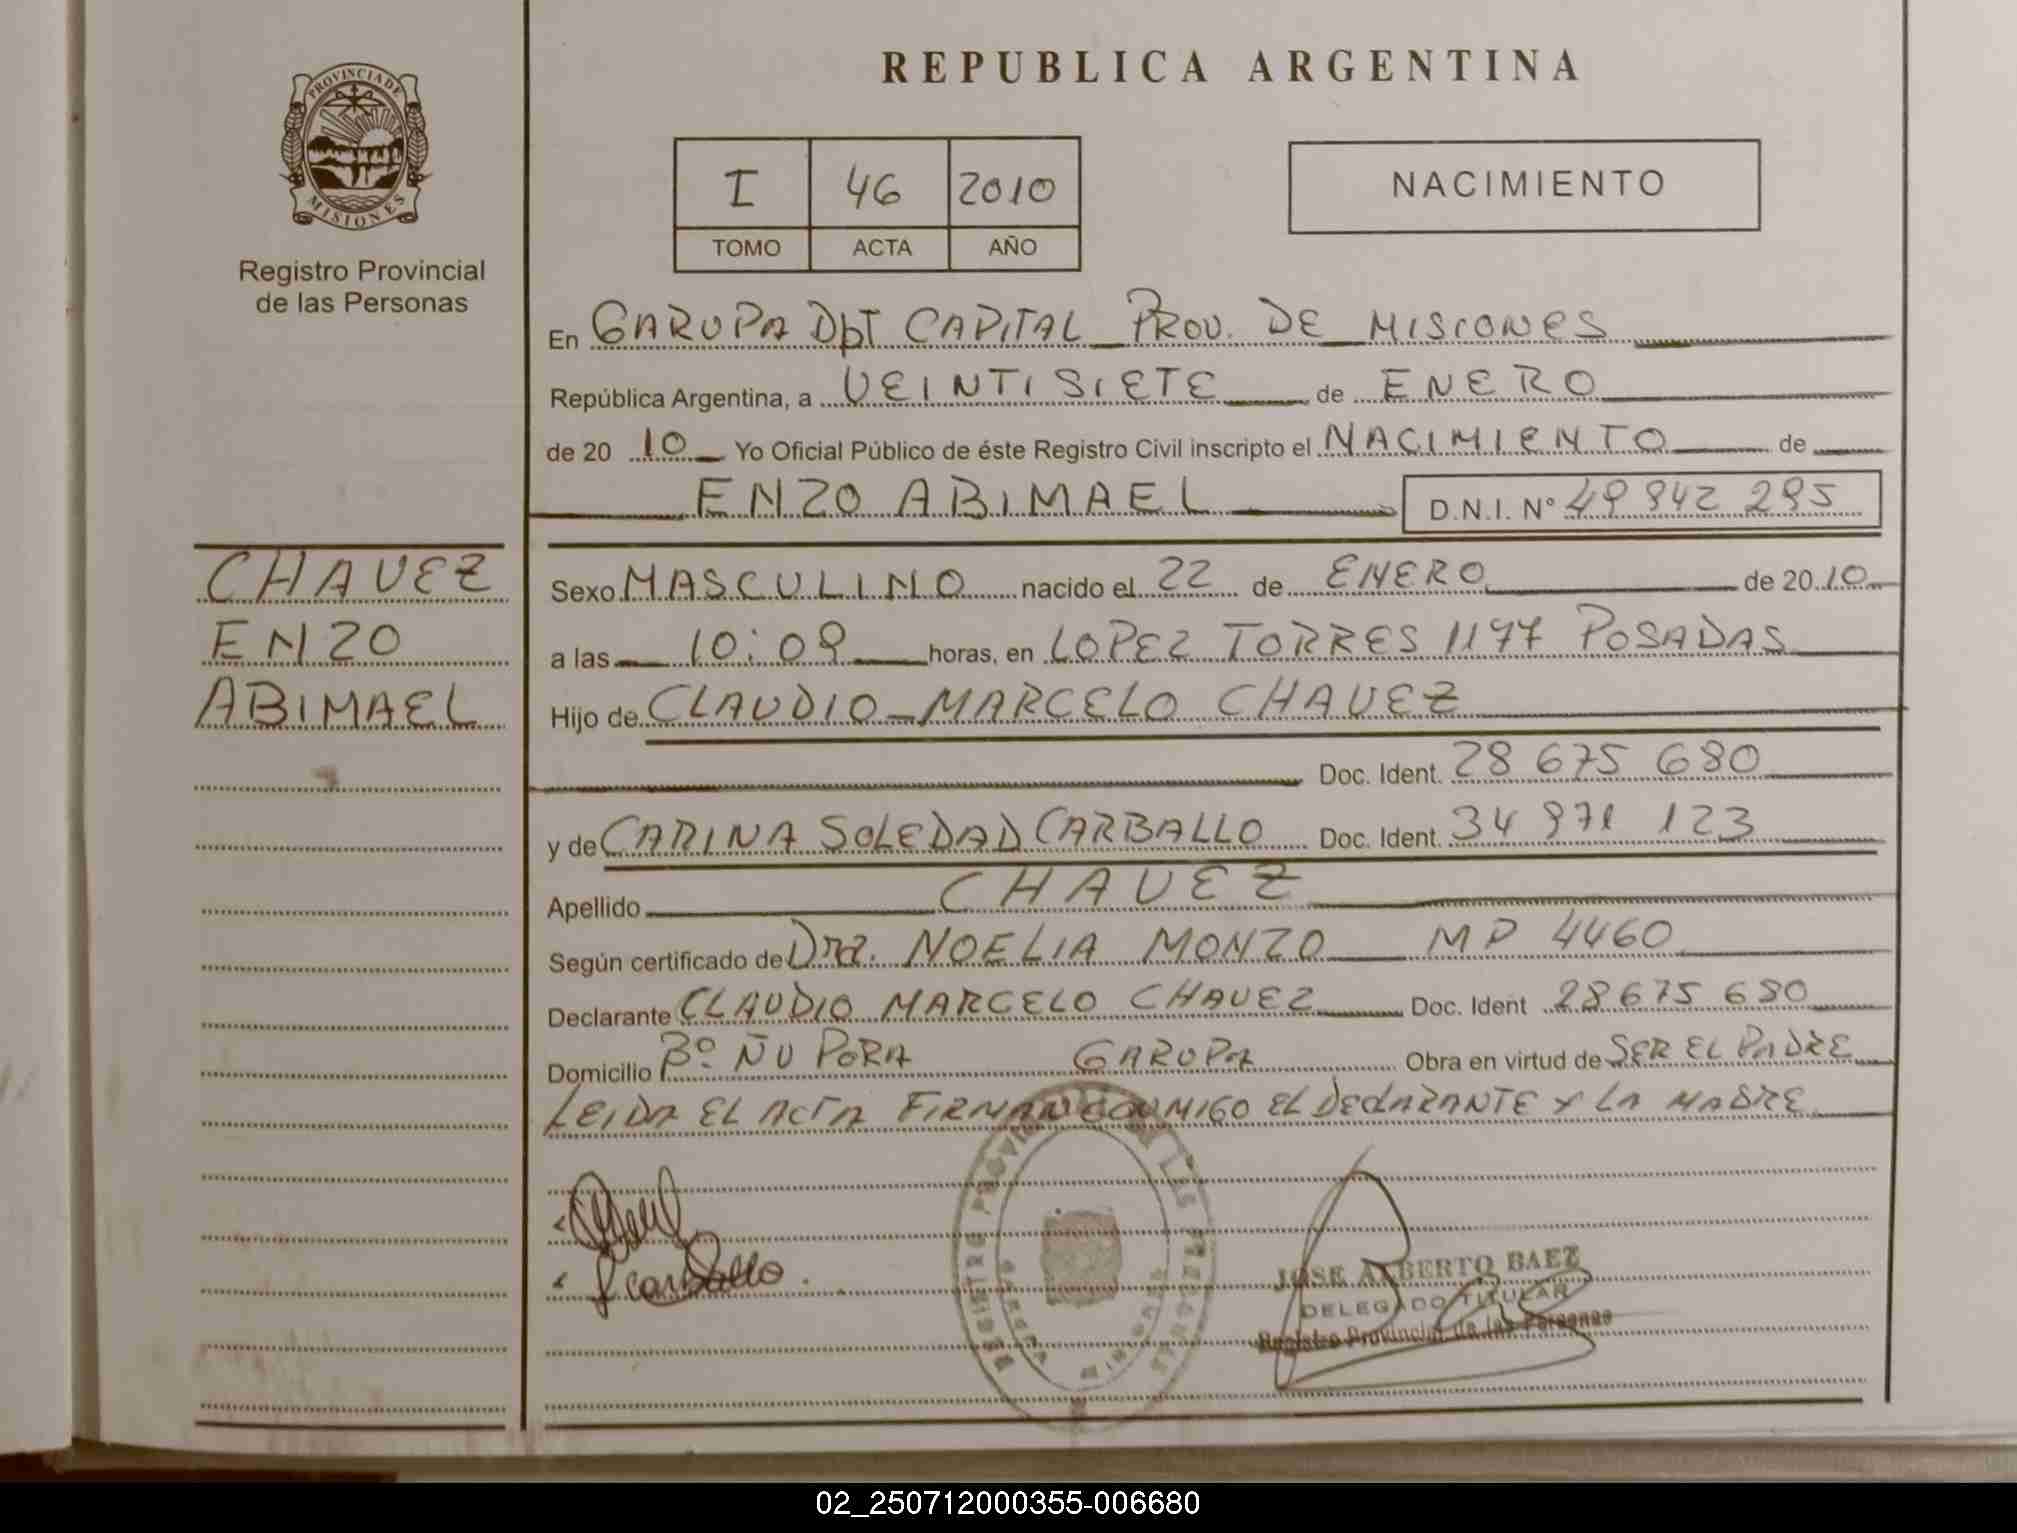 PROVINCIA DE
MISIONES
Registro Provincial
de las Personas
REPUBLICA ARGENTINA
I 46 2010
TOMO ACTA AÑO
NACIMIENTO
En GARUPA DPT CAPITAL PROV. DE MISIONES
República Argentina, a VEINTISIETE de ENERO
de 20 10 Yo Oficial Público de éste Registro Civil inscripto el NACIMIENTO de
ENZO ABIMAEL D.N.I. Nº 49 942 295
CHAVEZ
ENZO
ABIMAEL
Sexo MASCULINO nacido el 22 de ENERO de 20 10
a las 10:09 horas, en LOPEZ TORRES 1177 POSADAS
Hijo de CLAUDIO MARCELO CHAVEZ
Doc. Ident. 28 675 680
y de CARINA SOLEDAD CARBALLO Doc. Ident. 34 971 123
Apellido CHAVEZ
Según certificado de Dra. NOELIA MONZO MP 4460
Declarante CLAUDIO MARCELO CHAVEZ Doc. Ident 28 675 680
Domicilio Bº ÑU PORA GARUPA Obra en virtud de SER EL PADRE
LEIDA EL ACTA FIRMAN CONMIGO EL DECLARANTE Y LA MADRE
Carballo
REGISTRO PROVINCIAL DE LAS PERSONAS
GARUPA MISIONES
JOSE ALBERTO BAEZ
DELEGADO TITULAR
Registro Provincial de las Personas
02_250712000355-006680